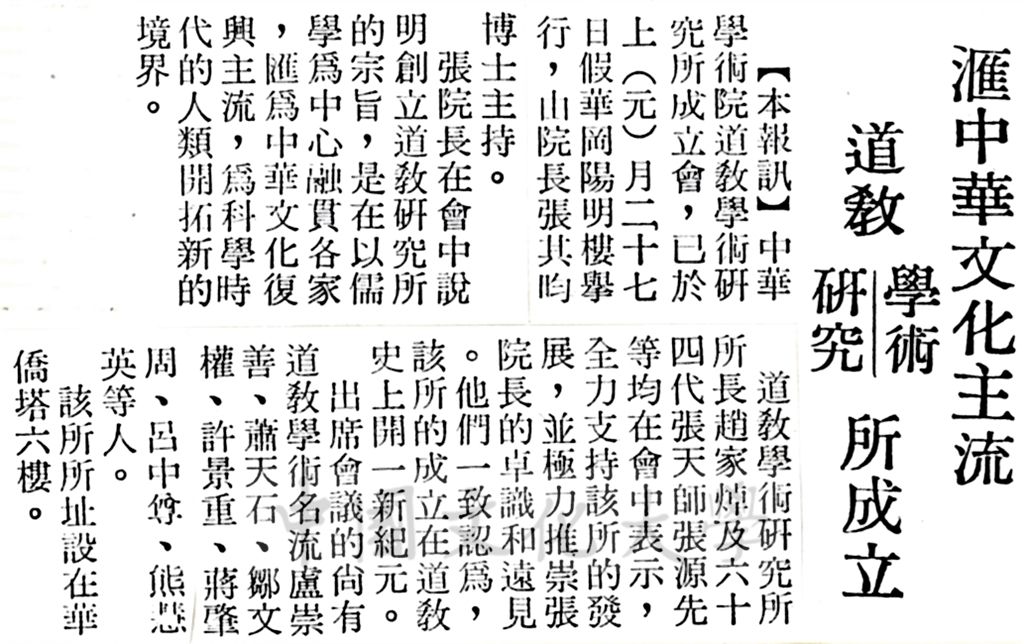 滙中華文化主流
道教學術研究所成立
【本報訊】中華
學術院道教學術研
究所成立會，已於
上（元）月二十七
日假華岡陽明樓舉
行，山院長張其昀
博士主持。
張院長在會中說
明創立道教研究所
的宗旨，是在以儒
學為中心融貫各家
，匯為中華文化復
興主流，為科學時
代的人類開拓新的
境界。
道教學術研究所
所長趙家焯及六十
四代張天師張源先
等均在會中表示，
全力支持該所的發
展，並極力推崇張
院長的卓識和遠見
。他們一致認為，
該所的成立在道教
史上開一新紀元。
出席會議的尚有
道教學術名流盧崇
善、蕭天石、鄒文
權、許景重、蔣肇
周、呂中尊、熊悲
英等人。
該所所址設在華
僑塔六樓。
中國文化大學